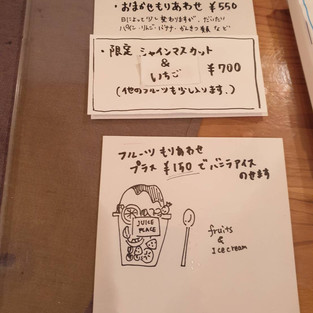 ・おまかせもりあわせ ¥550
日によって少し変わりますが、だいたい
パイン・りんご・バナナ・かんきつ類 など
・限定 シャインマスカット
&
いちご
¥700
(他のフルーツも少し入ります。)
フルーツもりあわせ
プラス ¥150 でバニラアイス
のせます
JUICE
PLACE
fruits
&
icecream